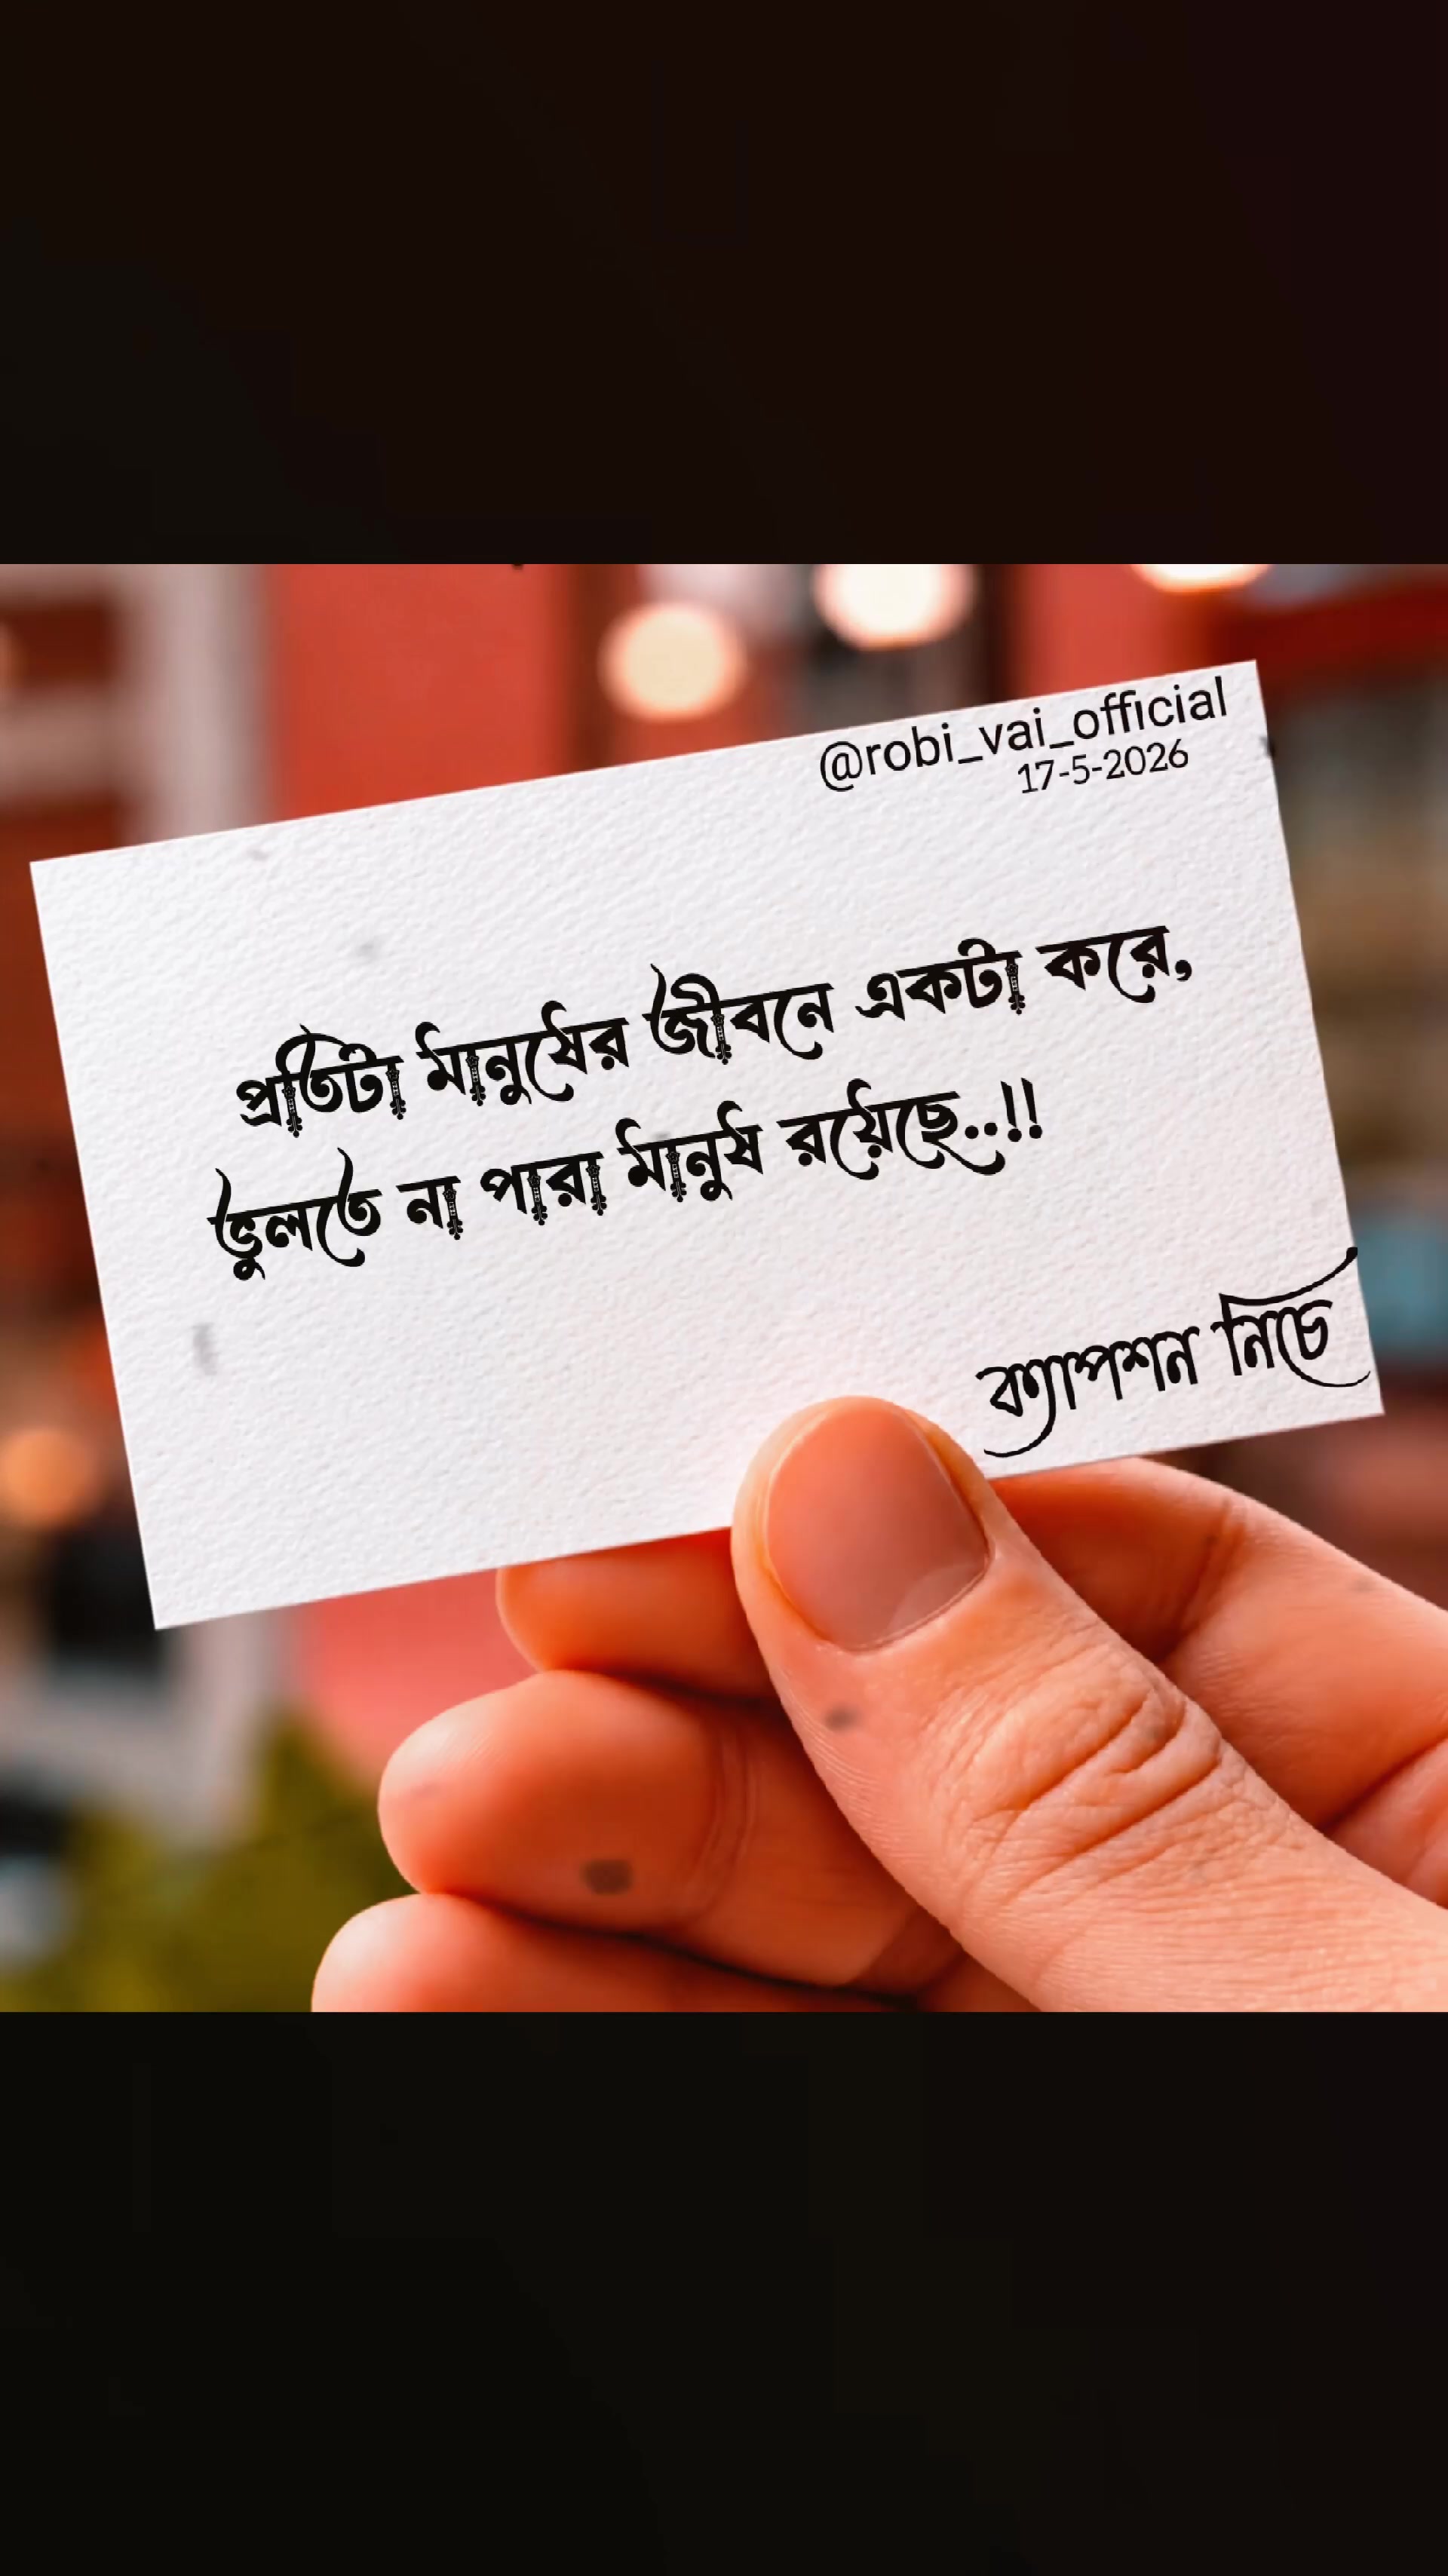 @robi_vai_official
17-5-2026
প্রতিটা মানুষের জীবনে একটা করে,
ভুলতে না পারা মানুষ রয়েছে..!!
ক্যাপশন নিচে